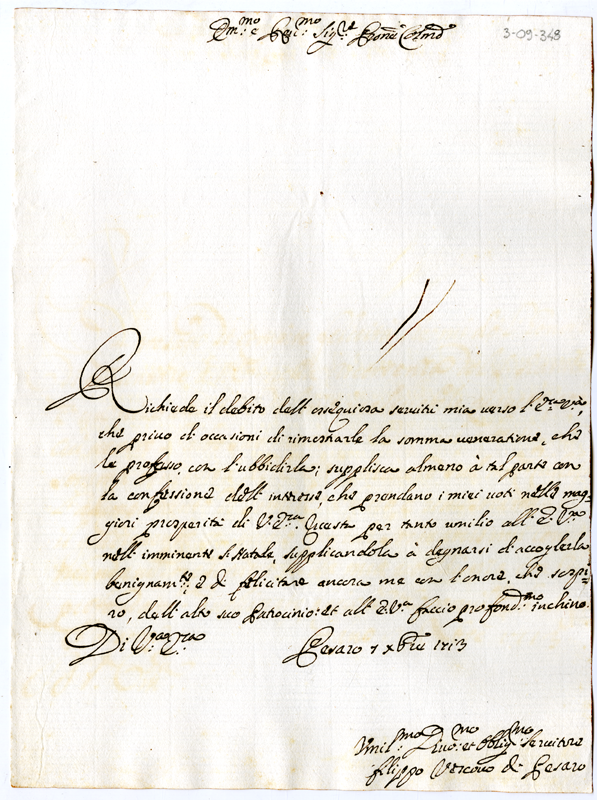 Em.mo e Rev.mo Sig.re Prone Colmo
3-09-348
Richiede il debito dell'ossequiosa servitù mia verso l'E.za V.ra,
che privo di occasioni di rimostrarle la somma venerazione, che
le professo, con l'ubbidirla; supplisca almeno à tal parte con
la confessione dell'interesse, che prendano i miei voti nelle mag=
giori prosperità di V.ra E.za. Queste per tanto umilio all'E.V.ra
nell'imminente S. Natale, supplicandola à degnarsi d'accoglierle
benignam.te, e di felicitare ancora me con l'onore, che sospi=
ro, dell'alto suo Patrocinio: et all'E.V.a faccio profond.mo inchino.
Di V.ra E.za
Pesaro 7 Xbre 1713
Umil.mo Divo.mo et Oblig.mo Servitore
Filippo Vescovo di Pesaro